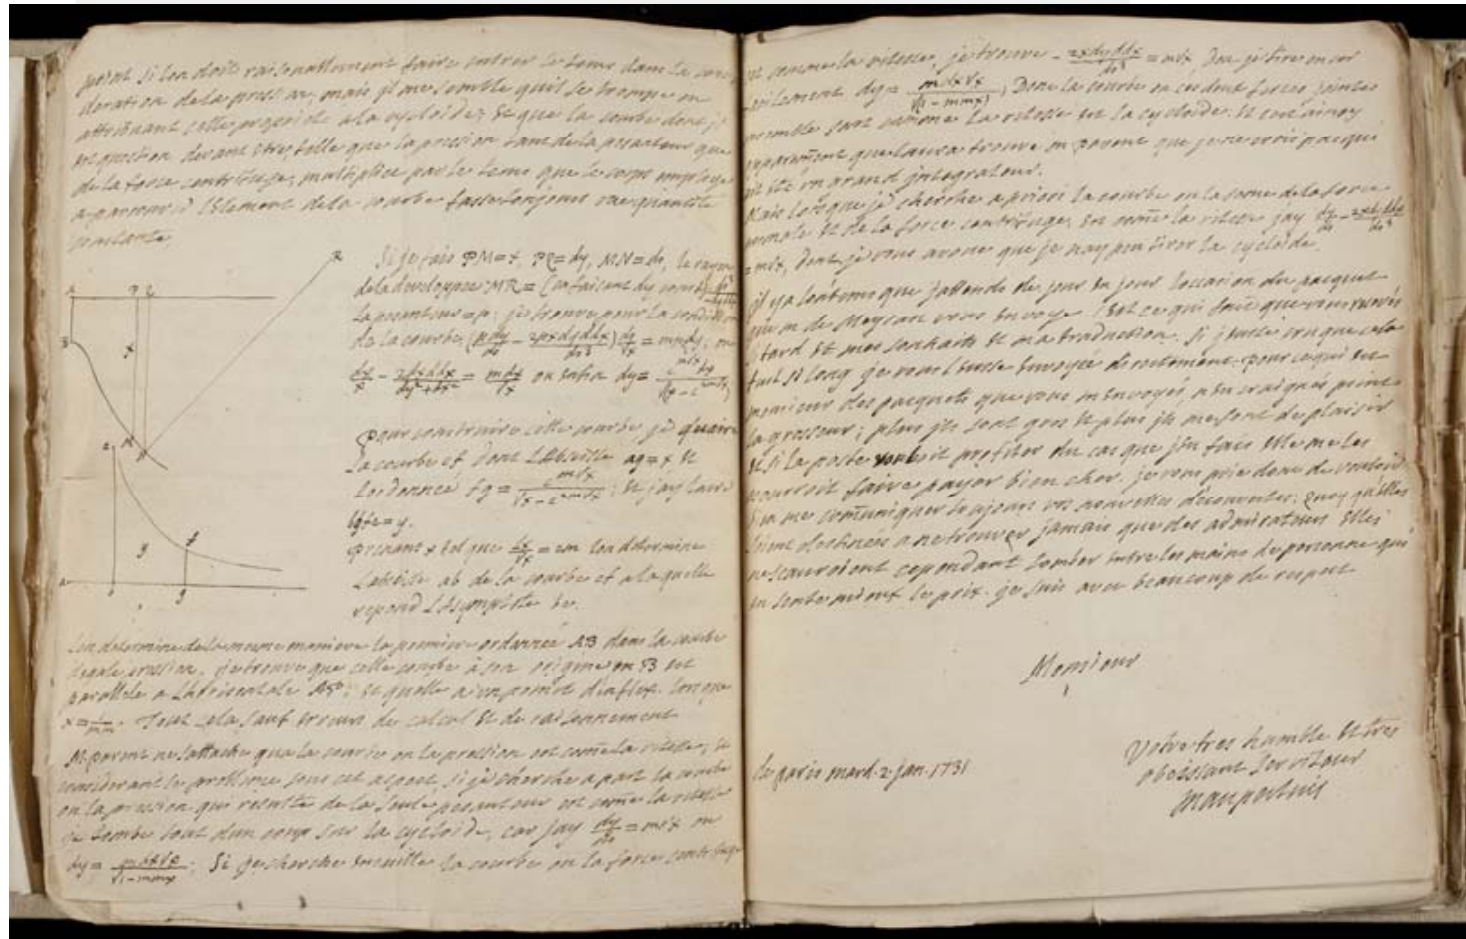 point si l'on doit raisonnablement faire entrer le tems dans la consi
deration de la pression, mais il me semble qu'il se trompe en
attribuant cette propriete a la cycloide; et que la courbe dont il
est question devant etre telle que la pression tant de la pesanteur que
de la force centrifuge, multiplice par le tems que le corps employe
a parcourir l'element de la courbe fasse toujours une quantité
constante.
R
A P Q
B
x
M
N
e
y
f
a b g
Si je fais PM=x, PQ=dy, MN=ds, le rayon
de la developpee MR= (en faisant dy const)
la pesanteur=p: je trouve pour la condition
de la courbe,
ou enfin dy=
Pour construire cette courbe je
La courbe ef dont L'Abscisse ag=x et
Lordonnée fg= ; et j'ay l'aire
bgfe=y.
prenant x tel que = l'on determine
L'abscisse ab de la courbe ef a laquelle
repond L'Asymptote be.
L'on determine de la mesme maniere la premiere ordonnée AB dans la courbe
degale pression. je trouve que cette courbe à son origine en B est
parallele a L'horisontale AP; et quelle a un point d'inflex. lorsque
x=1/mm. Tout cela sauf erreur de calcul et de raisonnement
M. parent ne s'attache qua la courbe ou la pression est come la vitesse; et
considerant le probleme sous cet aspect, si je cherche a part la courbe
ou la pression qui resulte de la seule pesanteur est come la vitesse
je tombe tout d'un coup sur la cycloide, car jay dy/ds=m√x ou
dy= mdx√x/√(1-mmx); Si je cherche ensuitte la courbe ou la force centrifuge
est comme la vitesse, je trouve - 2xdyddx/ds³ = m√x Dou je tire encor
dy= mdx√x/√(1-mmx); Donc la courbe ou ces deux forces jointes
ensemble sont comme la vitesse est la cycloide. et c'est ainsy
apparament que l'aura trouve m parent que je ne crois pas qui
ait été un grand integrateur.
Mais lorsque je cherche a priori la courbe ou la some de la force
normale et de la force centrifuge, est come la vitesse jay dy/ds - 2xdyddx/ds³
=m√x, Dont je vous avoue que je nay peu tirer la cycloide.
il y a lontems que j'attends de jour en jour l'occasion du pacquet
que m de Mayran vous envoye c'est ce qui fait que vous recevés
si tard et mes souhaits et ma traduction. Si j'eusse cru que cela
fust si long je vous l'eusse envoyée directement. pour ce qui est
monsieur des pacquets que vous m'envoyés n'en craignés point
la grosseur; plus ils sont gros et plus ils me font de plaisir
et si la poste vouloit profiter du cas que j'en fais elle me les
pourroit faire payer bien cher. je vous prie donc de vouloir
bien me comuniquer toujours vos nouvelles decouvertes; quoy qu'elles
soient destinées a ne trouver jamais que des admirateurs elles
ne scauroient cependant tomber entre les mains de personne qui
en sente mieux le prix. je suis avec beaucoup de respect
Monsieur
Votre tres humble et tres
obeissant Serviteur
Maupertuis
de paris mard. 2. jan. 1731